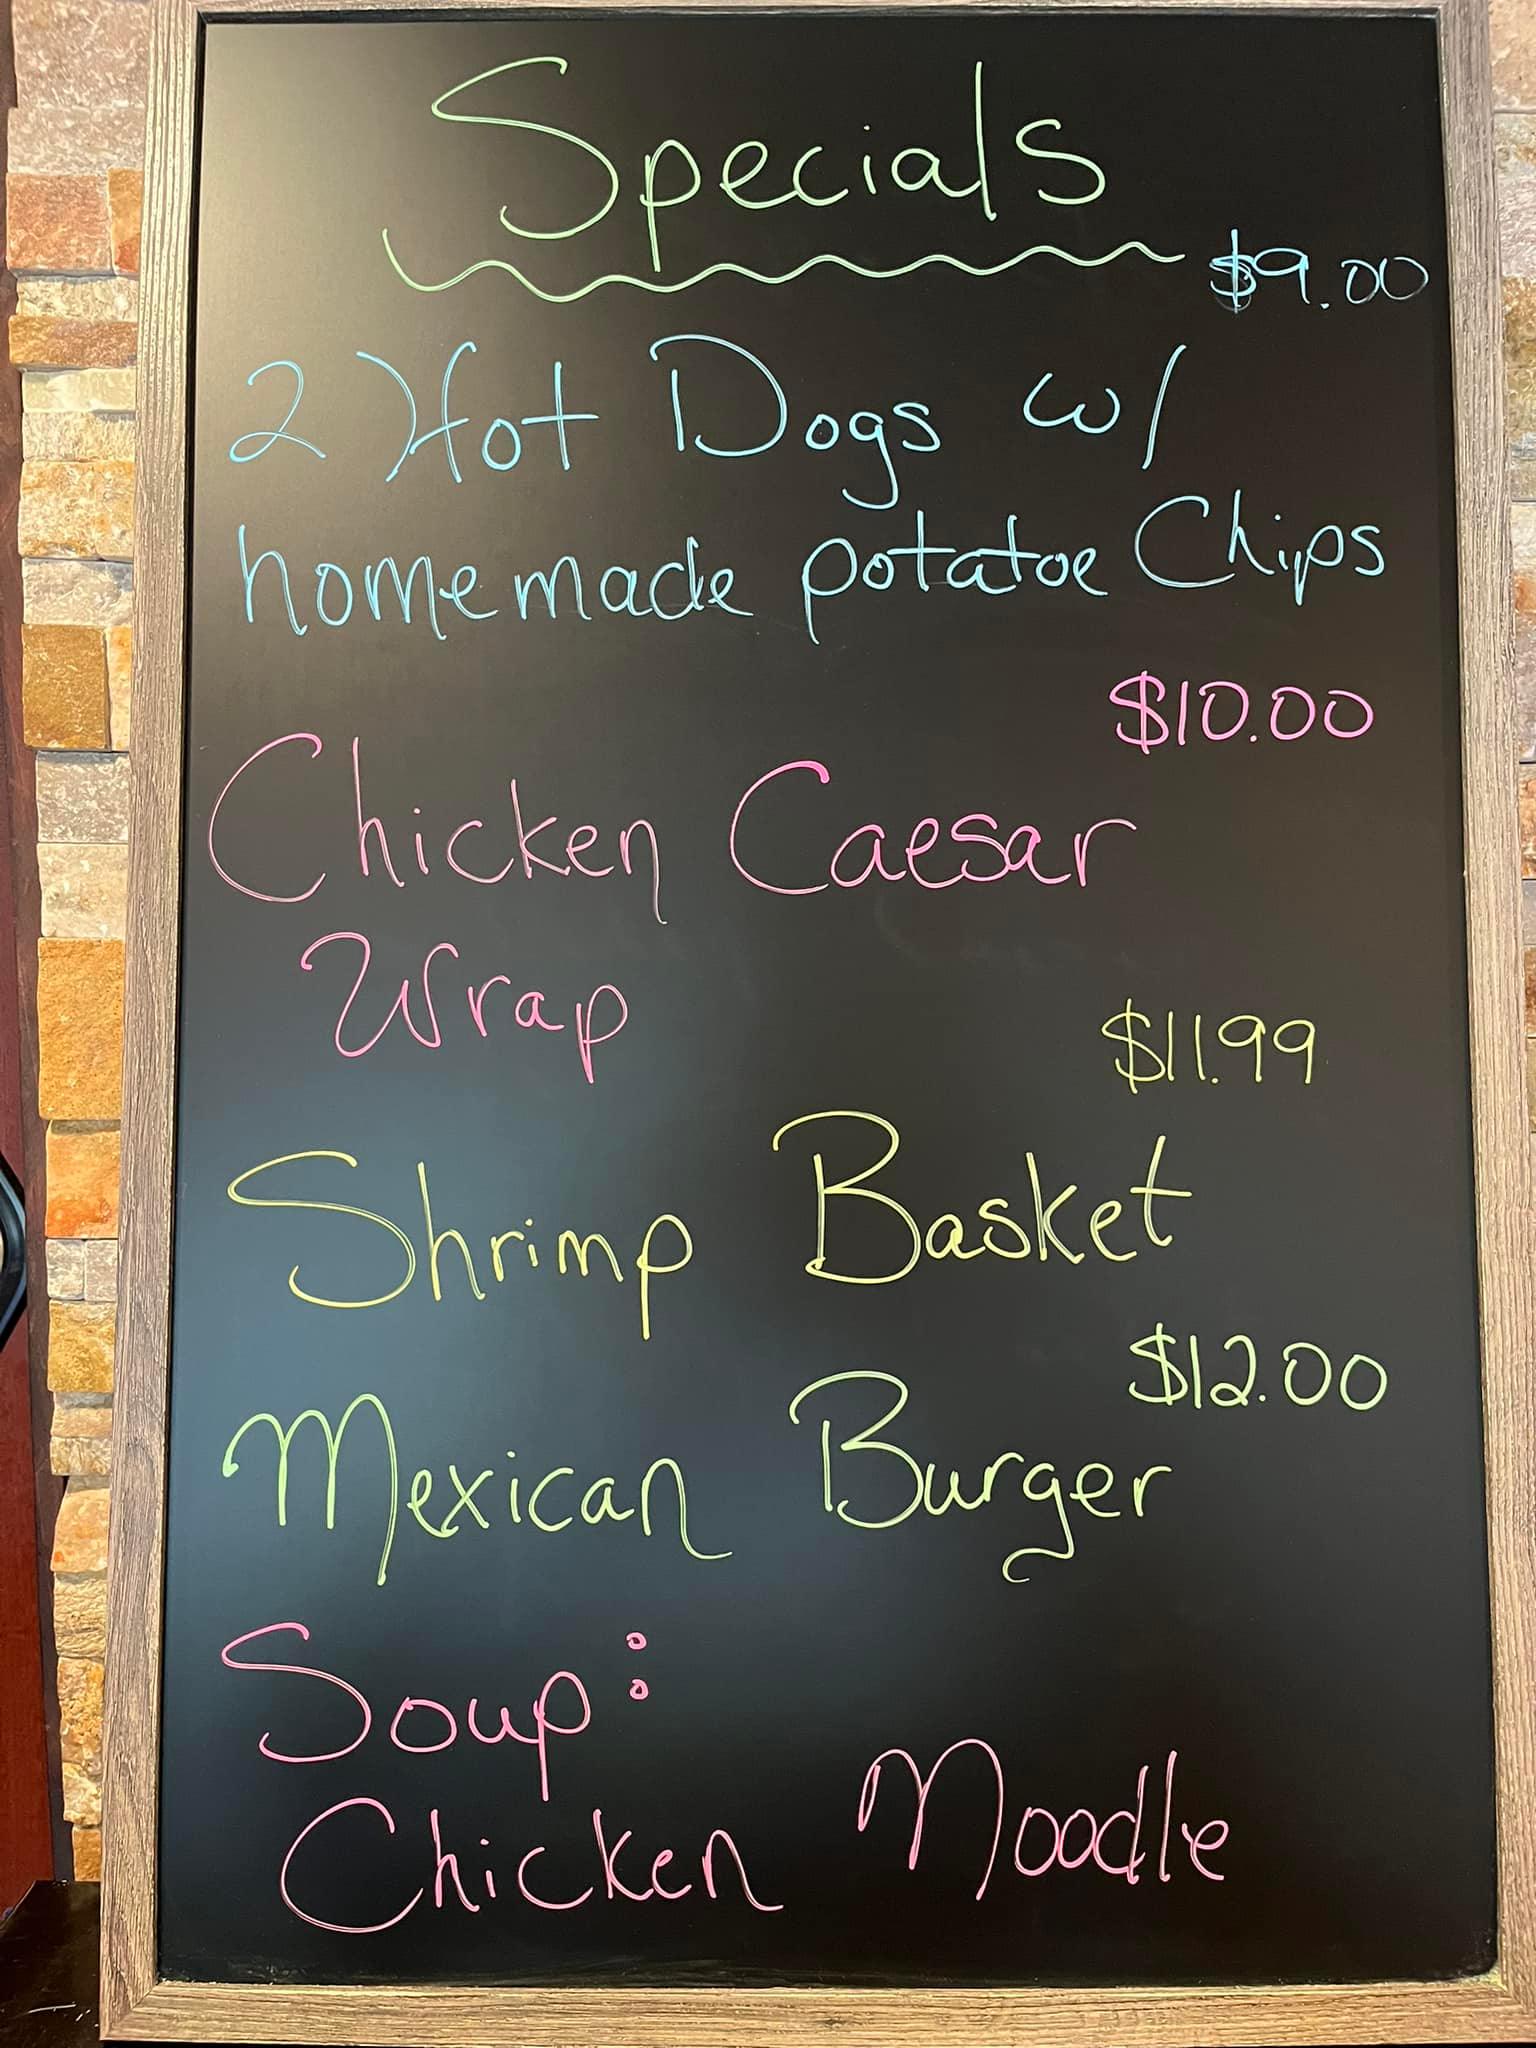 Specials
$9.00
2 Hot Dogs w/
homemade potatoe Chips
$10.00
Chicken Caesar
Wrap
$11.99
Shrimp Basket
$12.00
Mexican Burger
Soup:
Chicken Noodle